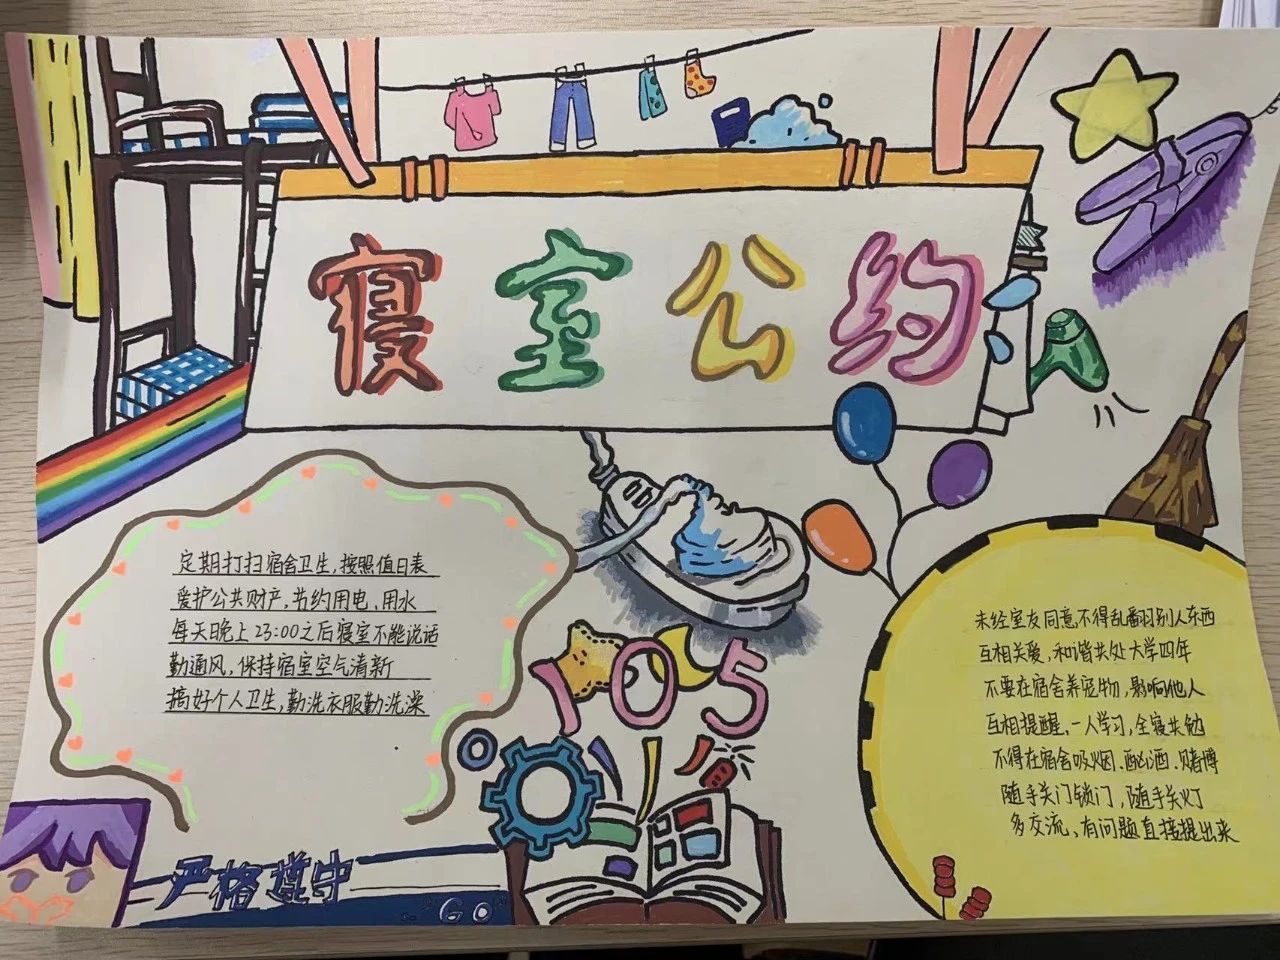 寝室公约
定期打扫宿舍卫生,按照值日表
爱护公共财产,节约用电、用水
每天晚上23:00之后寝室不能说话
勤通风,保持宿室空气清新
搞好个人卫生,勤洗衣服勤洗澡
105
未经室友同意不得乱翻别人东西
互相关爱,和谐共处大学四年
不要在宿舍养宠物,影响他人
互相提醒,一人学习,全寝共勉
不得在宿舍吸烟、酗酒、赌博
随手关门锁门,随手关灯
多交流、有问题直接提出来
严格遵守
GO